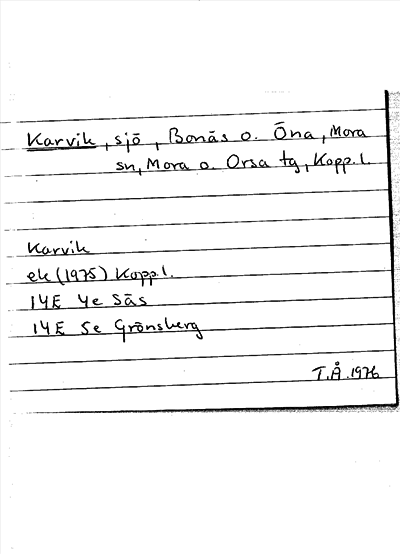 Karvik, sjö, Bonäs o. Öna, Mora
sn, Mora o. Orsa tg, Kopp. l.
Karvik
ek (1975) Kopp. l.
14E 4e Säs
14E 5e Grönsberg
T.Å. 1976